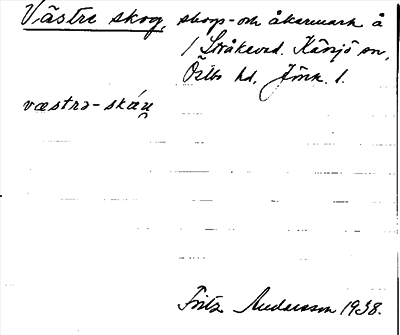 Västre skog, skogs- och åkermark å
1 Stråkeved. Kävsjö sn,
Östbo hd, Jönk. l.
væstrə-skóu̯
Fritz Andersson 1938.